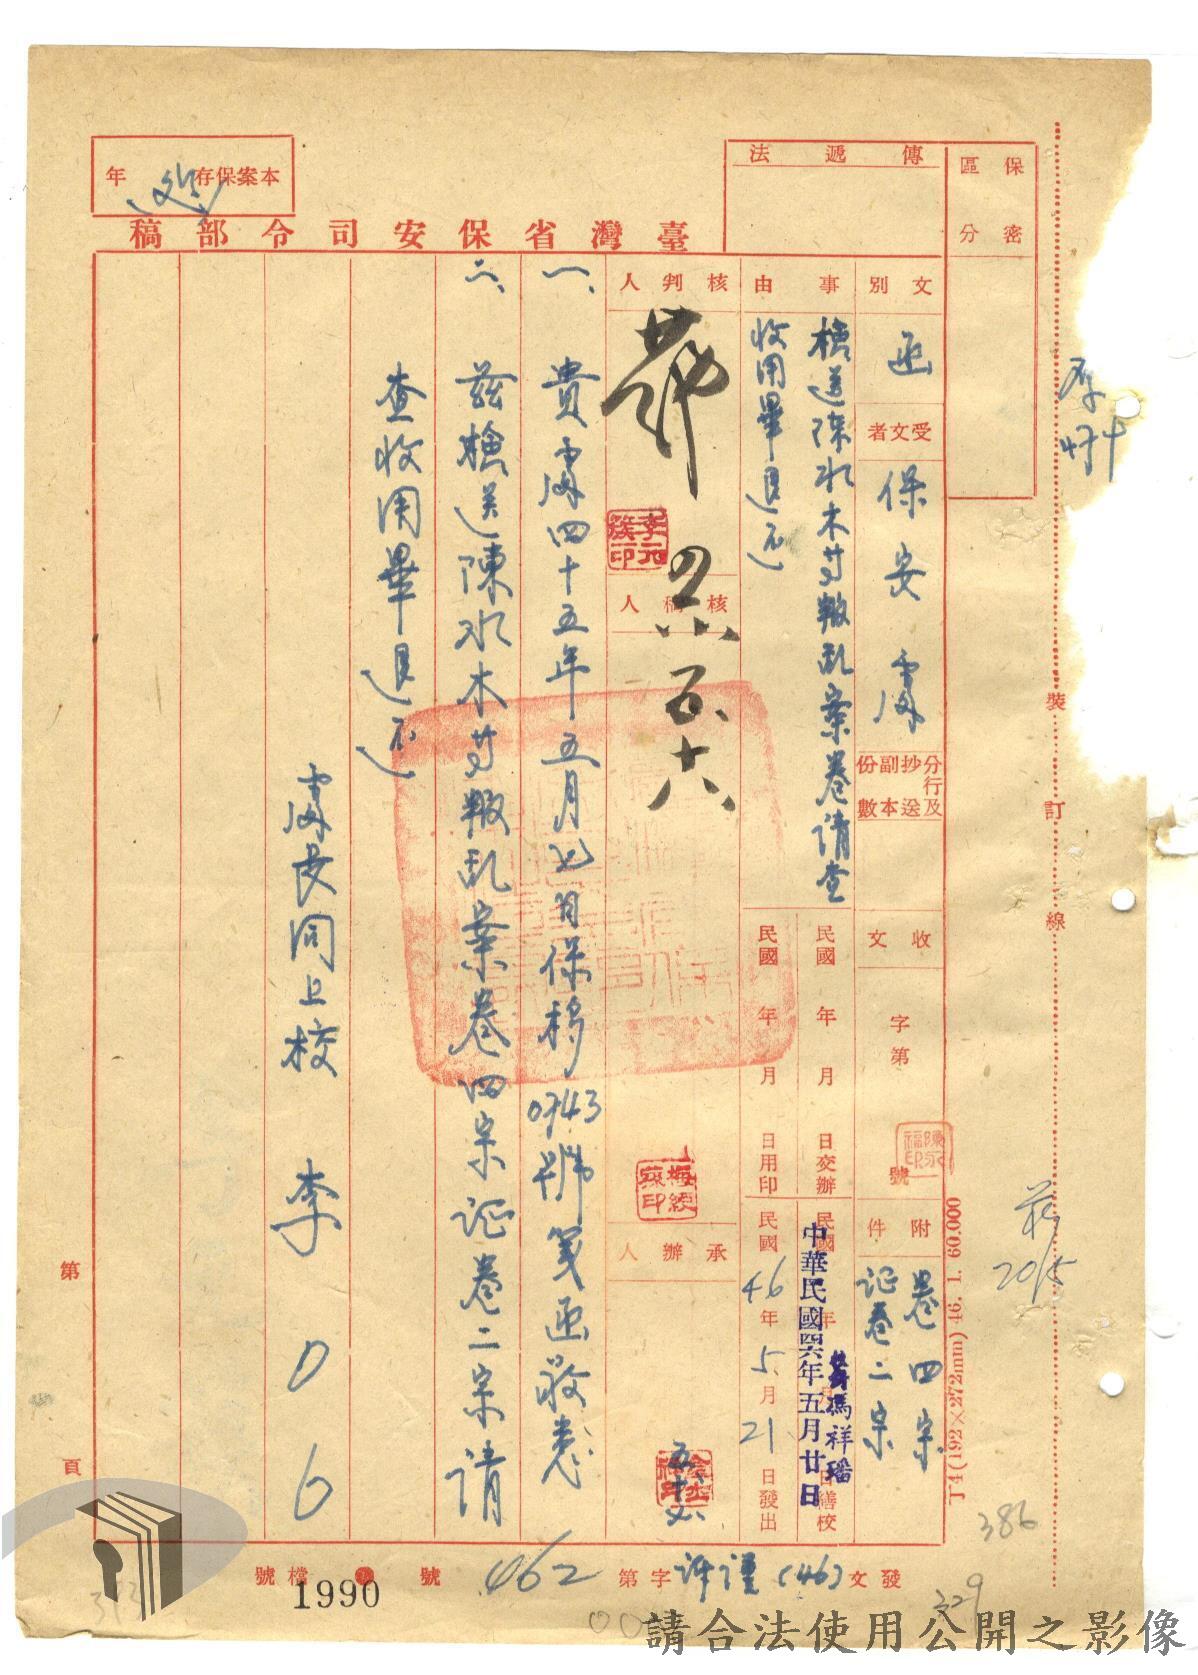 保密
區分
傳遞法
本案保存
年
臺灣省保安司令部稿
文別
函
受文者
保安處
分行及抄送副本份數
收文
字第
號
附件
卷四宗
証卷二宗
事由
檢送陳水木等叛乱案卷請查
收用畢退还
民國 年 月 日交辦
民國 年 月 日用印
民國 年 月 日繕校
中華民國四六年五月廿日
馮祥璠
民國46年5月21日發出
核判人
核稿人
承辦人
李元簇印
一、
貴處四十五年五月七日保移0743號箋函敬悉
二、
茲檢送陳水木等叛乱案卷四宗証卷二宗請
查收用畢退还
處長同上校 李 0 6
裝訂線
20/5
T4(192×272mm) 46. 1. 60.000
第 頁
發文(46)
字第
462
號
檔
號
1990
386
329
313
請合法使用公開之影像